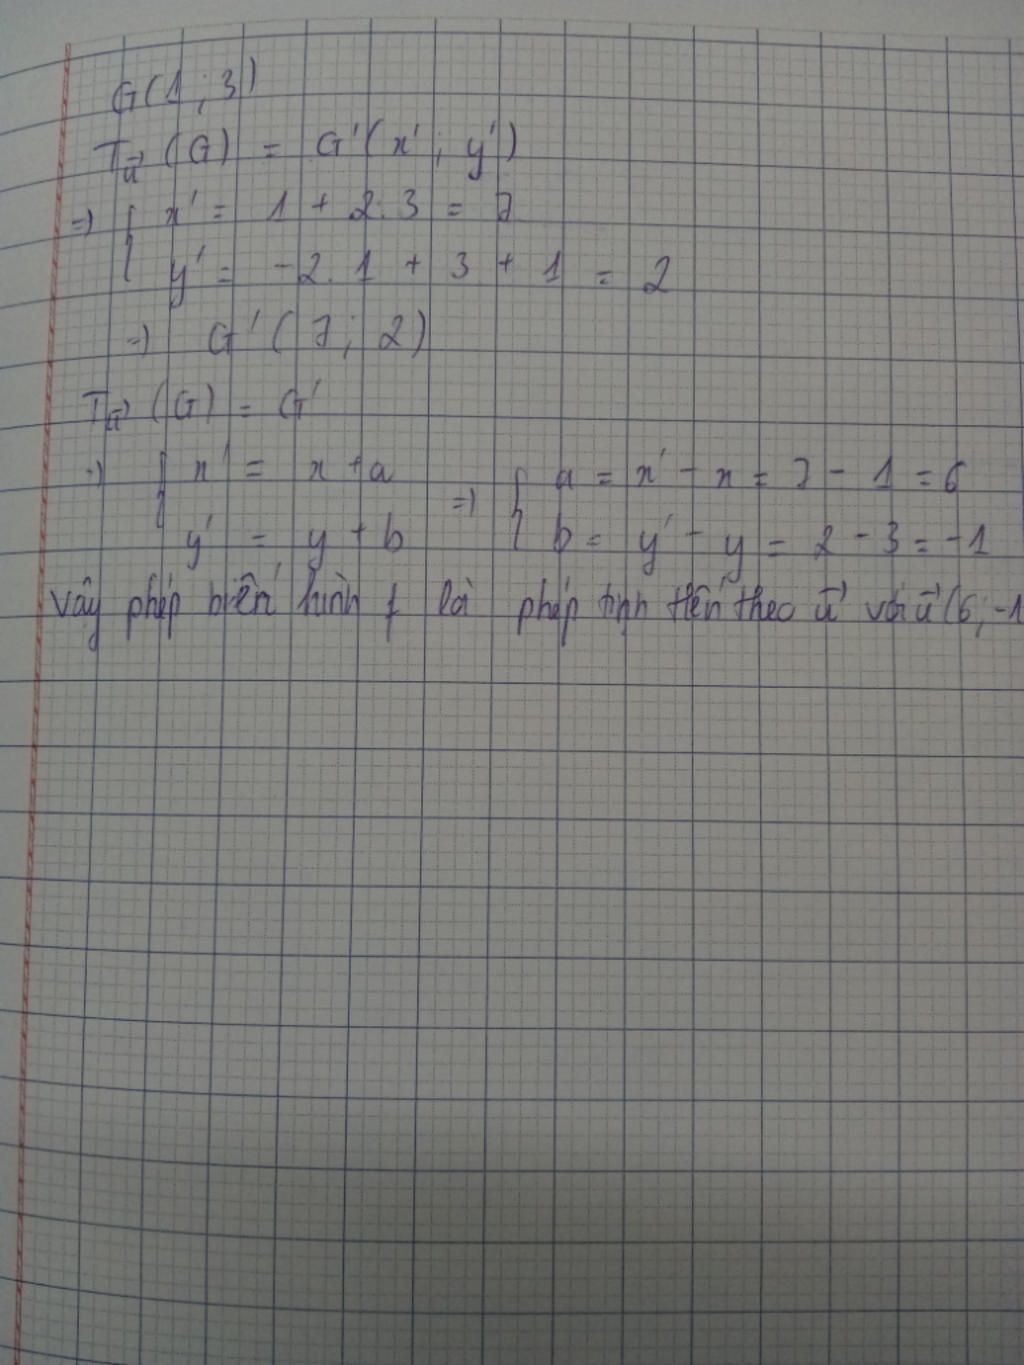 G(1 ; 3)
Tu⃗ (G) = G'(x' ; y')
=> { x' = 1 + 2.3 = 7
y' = -2.1 + 3 + 1 = 2
=> G' (7 ; 2)
Tu⃗ (G) = G'
=> { x' = x + a => { a = x' - x = 7 - 1 = 6
y' = y + b b = y' - y = 2 - 3 = -1
Vậy phép biến hình f là phép tịnh tiến theo u⃗ với u⃗ (6; -1